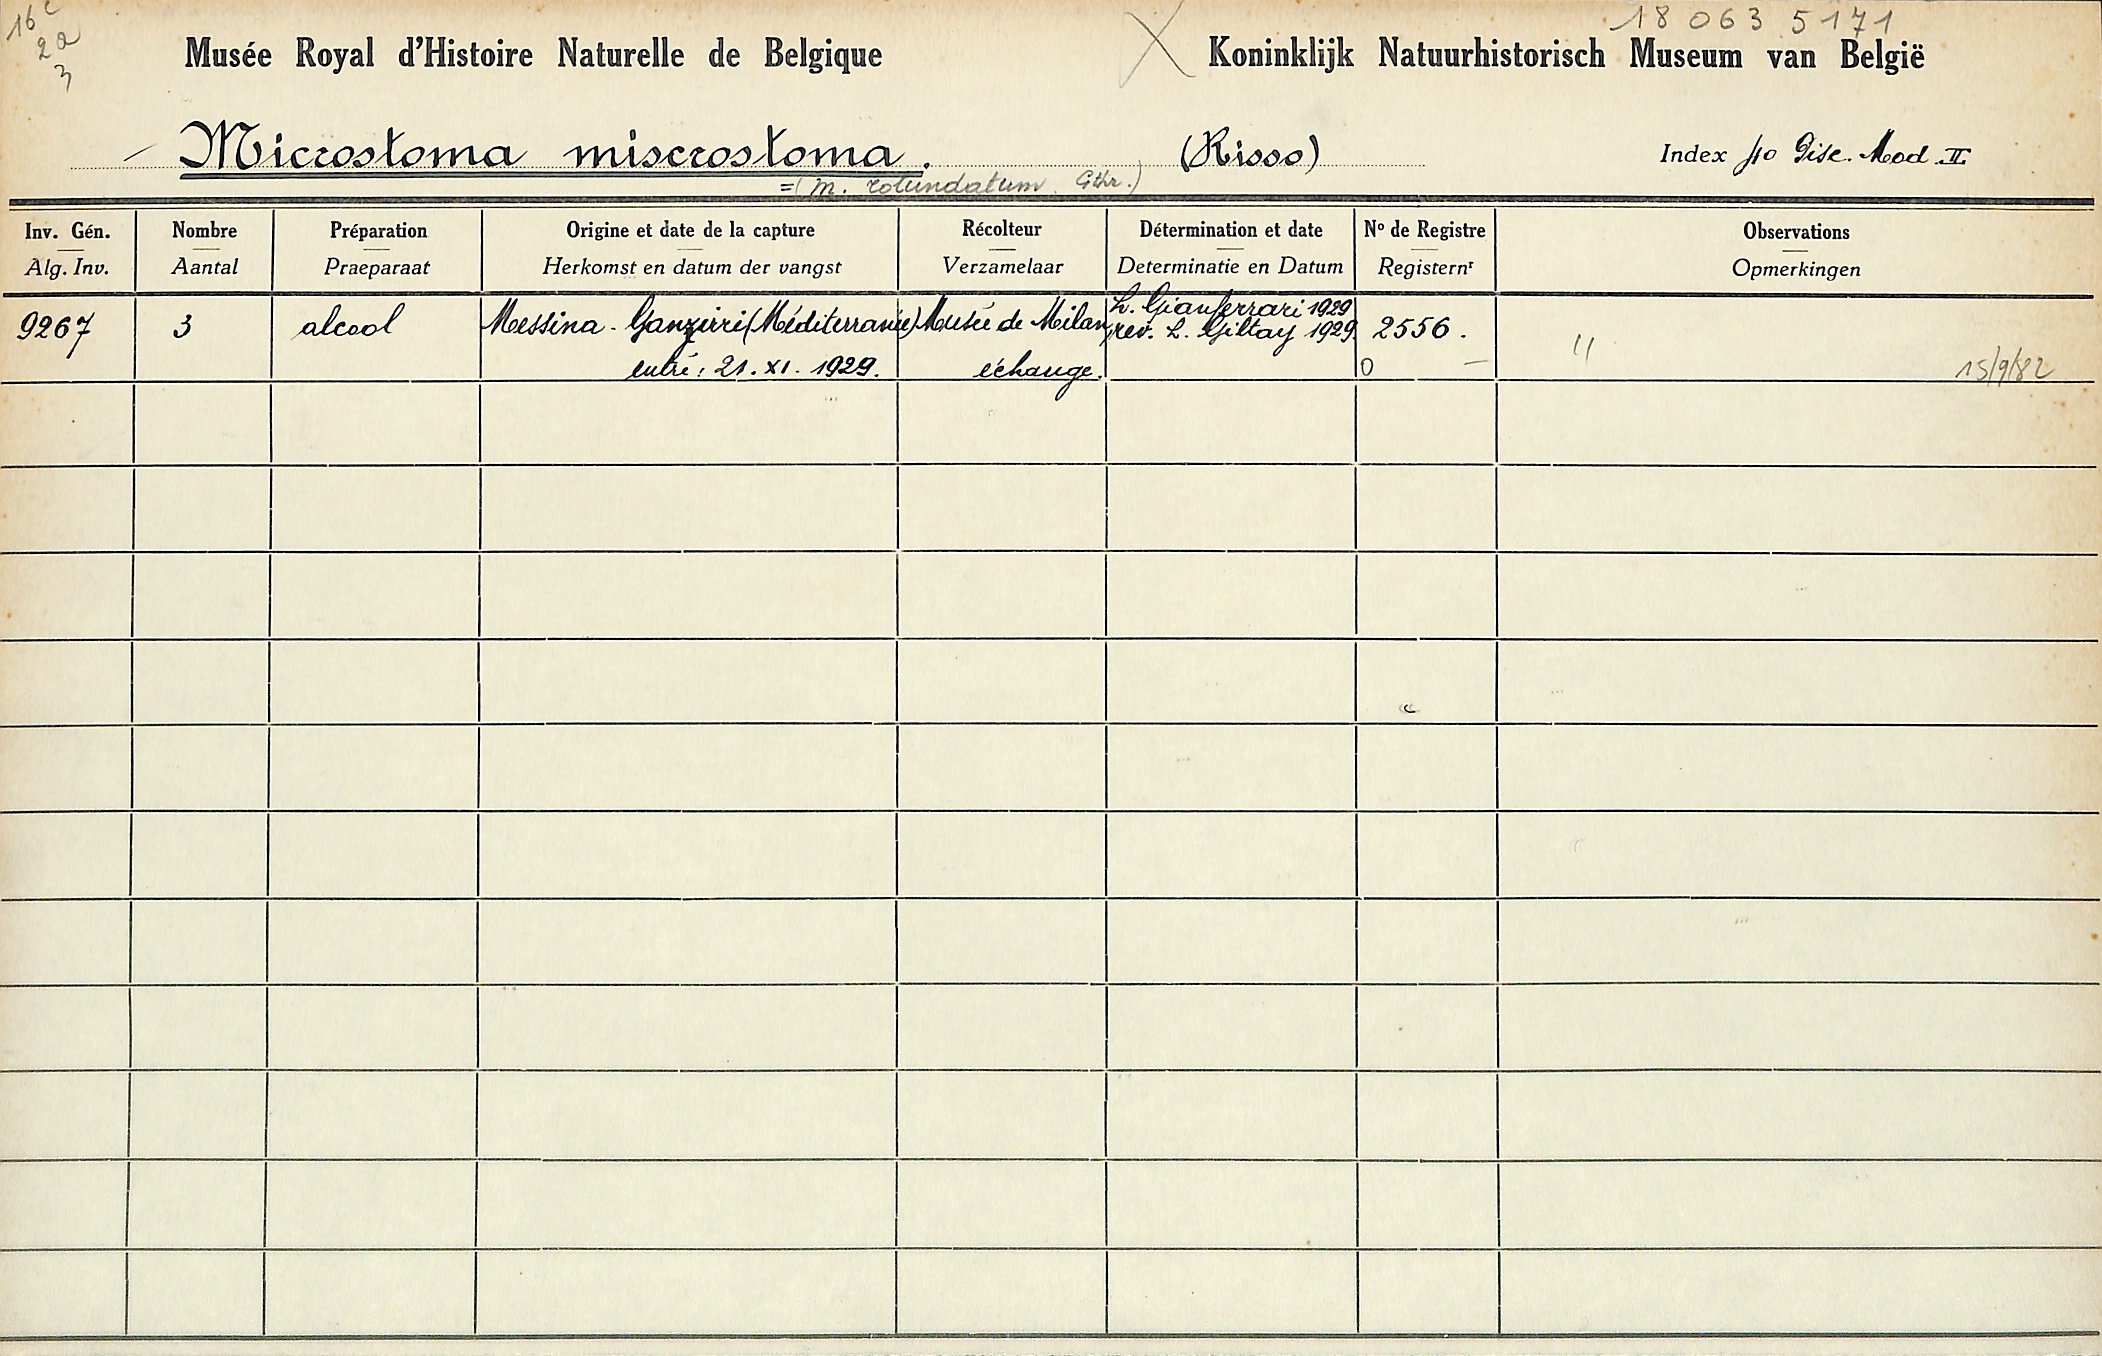 16c
2a
3
18 063 5171
Musée Royal d'Histoire Naturelle de Belgique
Koninklijk Natuurhistorisch Museum van België
Microstoma miscrostoma. (Risso)
Index Mod. II
=(M. rotundatum Gthr.)
Inv. Gén. Nombre Préparation Origine et date de la capture Récolteur Détermination et date Nº de Registre Observations
Alg. Inv. Aantal Praeparaat Herkomst en datum der vangst Verzamelaar Determinatie en Datum Registernr Opmerkingen
L. Gianferrari 1929
9267 3 alcool Messina - Ganzirri (Méditerranée) Musée de Milan, rev. L. Giltay 1929. 2556.
entré: 21.XI.1929. échange. 0 —
15/9/82